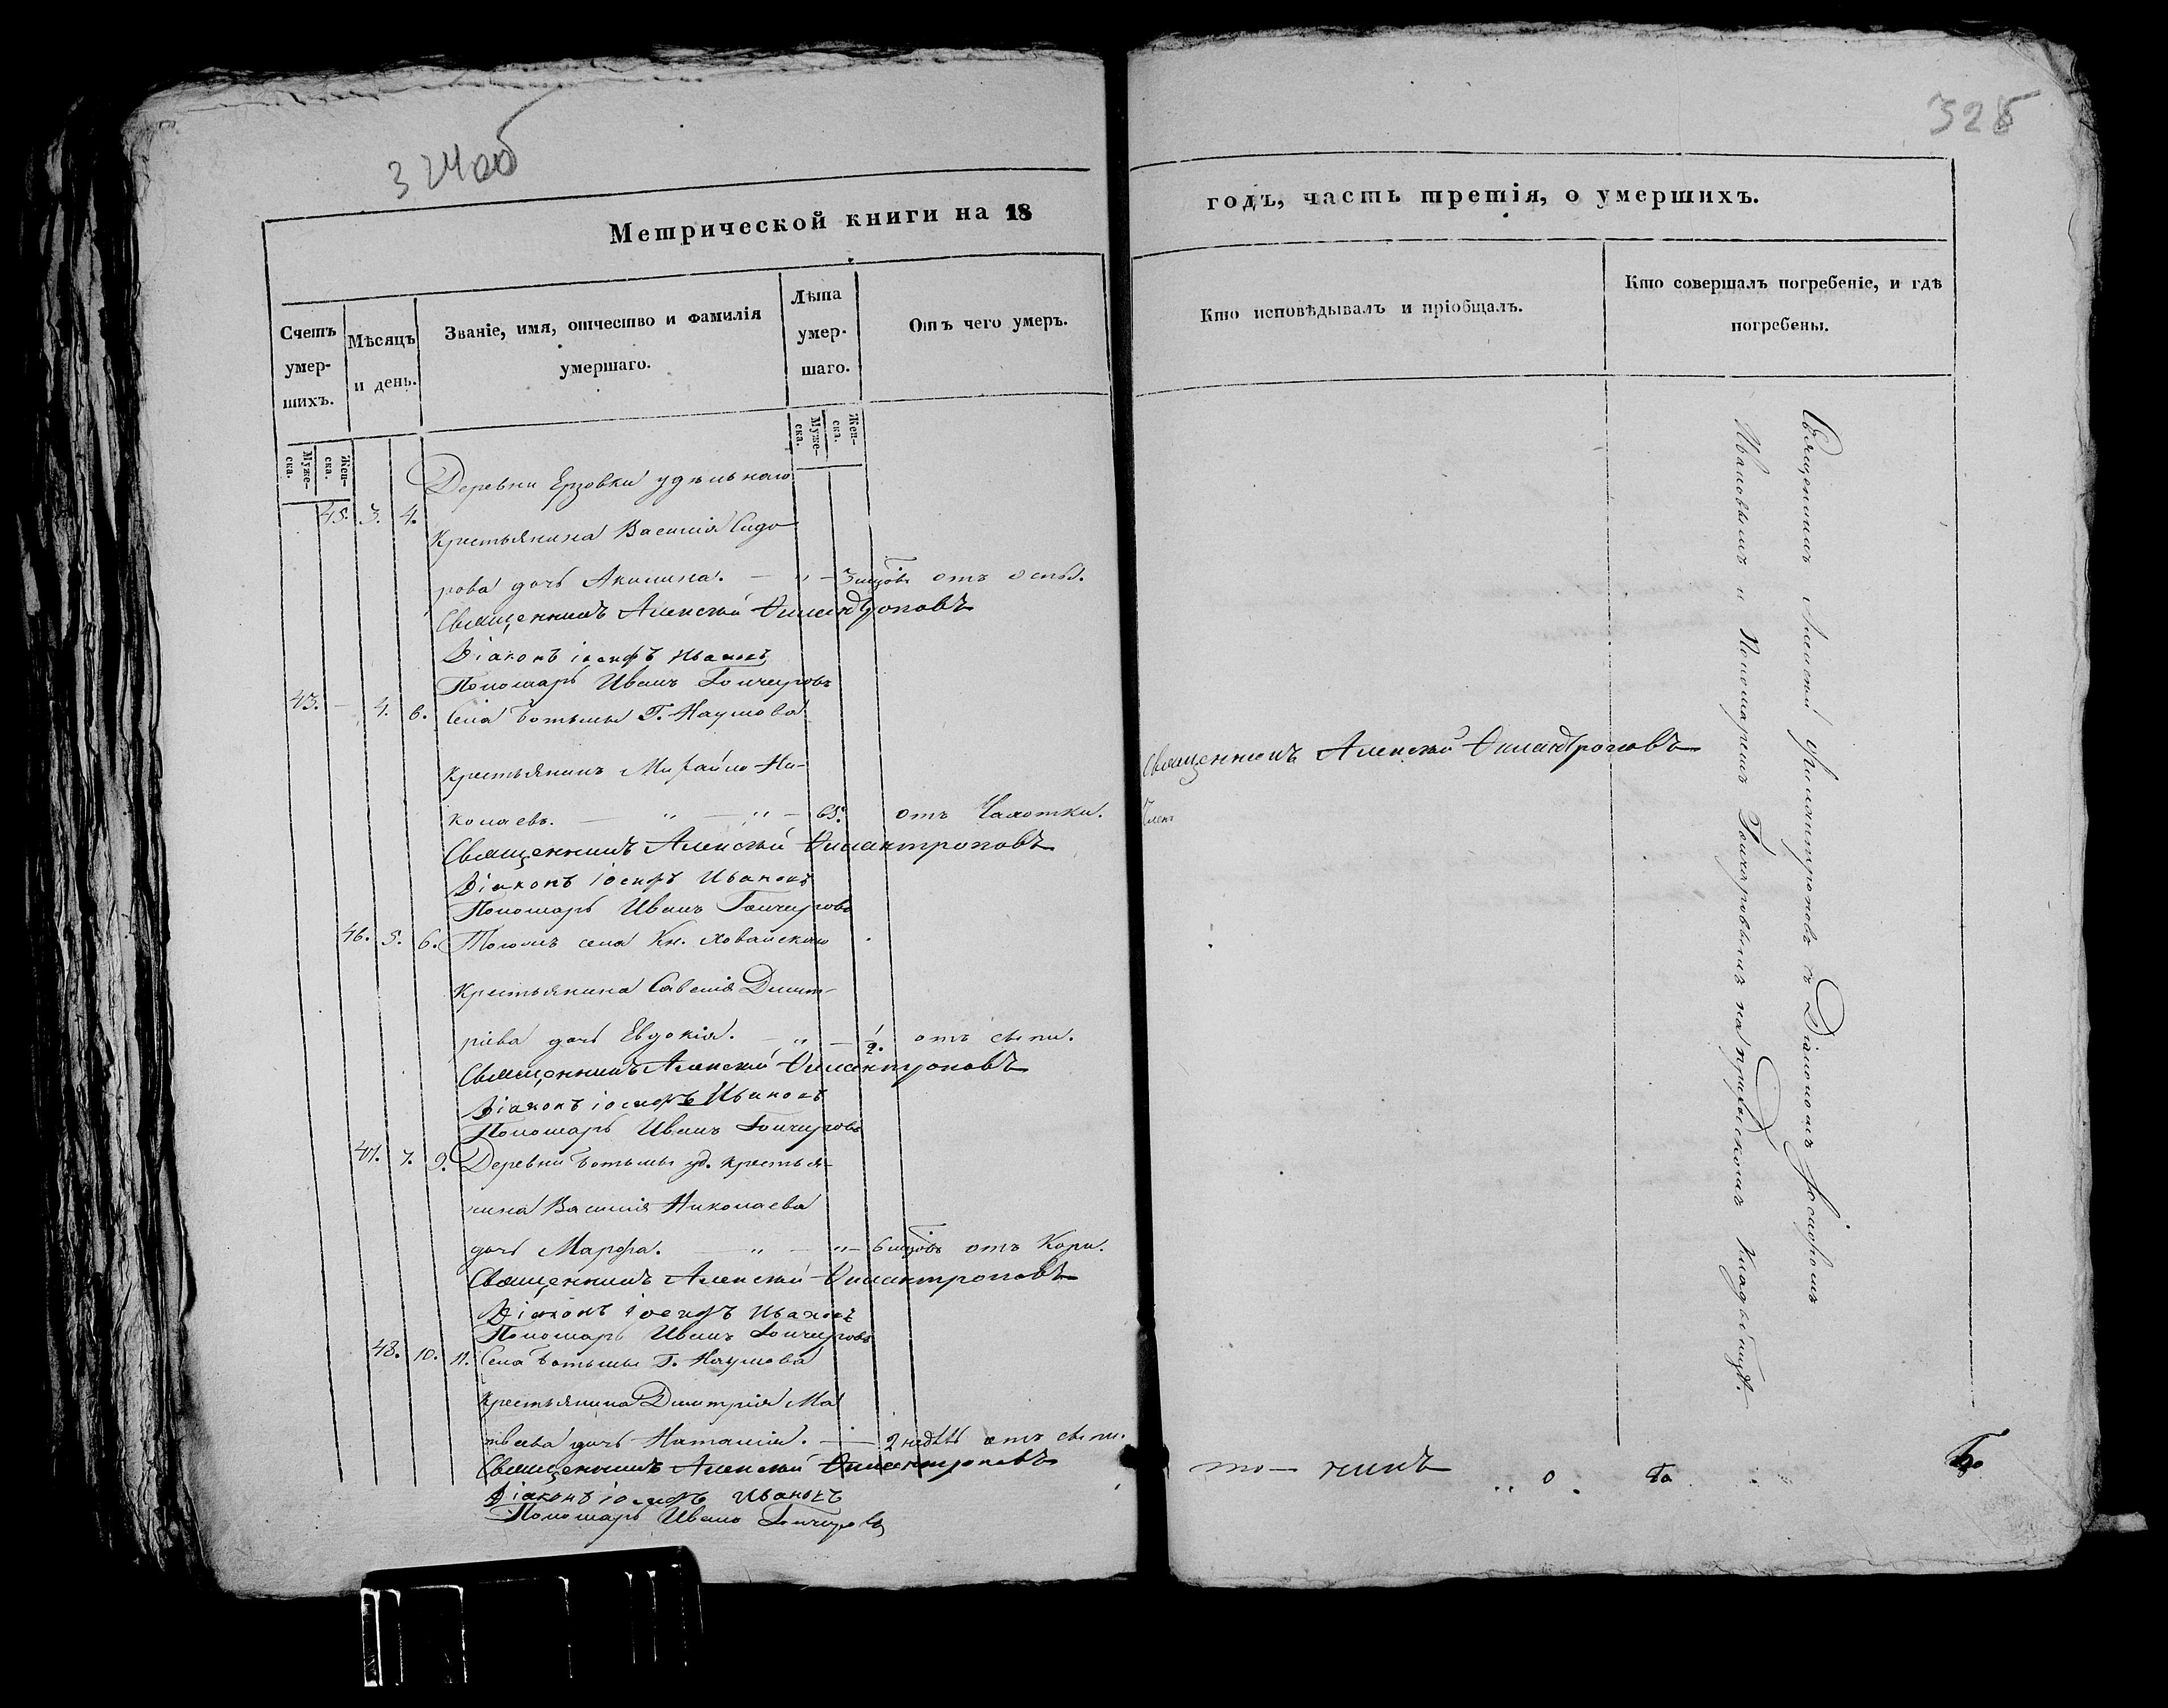 324об
Метрической книги на 18
Счетъ умер-шихъ.
Мѣсяцъ и день.
Званіе, имя, отчество и фамилія умершаго.
Лѣта умер-шаго.
Отъ чего умеръ.
Муже-ска.
Жен-ска.
Муже-ска.
Жен-ска.
Деревни Ерзовки удѣльнаго
45. 3. 4.
Крестьянина Василія Сидо
рова дочь Акилина. — „ — 3 мцовъ отъ оспы.
Священникъ Алексѣй Филантроповъ
Діаконъ Іосифъ Ивановъ
Пономарь Иванъ Гончаровъ
43. — 4. 6. Села Ботьмы Г. Наумова
Крестьянинъ Михайло Ни-
колаевъ. — „ — „ — 65. отъ Чахотки.
Священникъ Алексѣй Филантроповъ
Діаконъ Іосифъ Ивановъ
Пономарь Иванъ Гончаровъ
46. 5. 6. Тогожъ села Кн. Хованскаго
Крестьянина Савелія Димит-
ріева дочь Евдокія. — „ — 1/2. отъ сыпи.
Священникъ Алексѣй Филантроповъ
Діаконъ Іосифъ Ивановъ
Пономарь Иванъ Гончаровъ
47. 7. 9. Деревни Ботьмы уд. крестья-
нина Василія Николаева
дочь Марфа. — „ — „ — 6 мцовъ отъ Кори.
Священникъ Алексѣй Филантроповъ
Діаконъ Іосифъ Ивановъ
Пономарь Иванъ Гончаровъ
48. 10. 11. Села Ботьмы Г. Наумова
Крестьянина Димитрія Ма
твѣева дочь Наталія. — 2 недѣль отъ сыпи.
Священникъ Алексѣй Филантроповъ
Діаконъ Іосифъ Ивановъ
Пономарь Иванъ Гончаровъ
325
годъ, часть третія, о умершихъ.
Кто исповѣдывалъ и пріобщалъ.
Кто совершалъ погребеніе, и гдѣ погребены.
Священникъ Алексѣй Филантроповъ
Священникомъ Алексѣй Филантроповъ съ Діакономъ Іосифомъ
Ивановымъ и Пономаремъ Гончаровымъ на приходскомъ кладбищѣ.